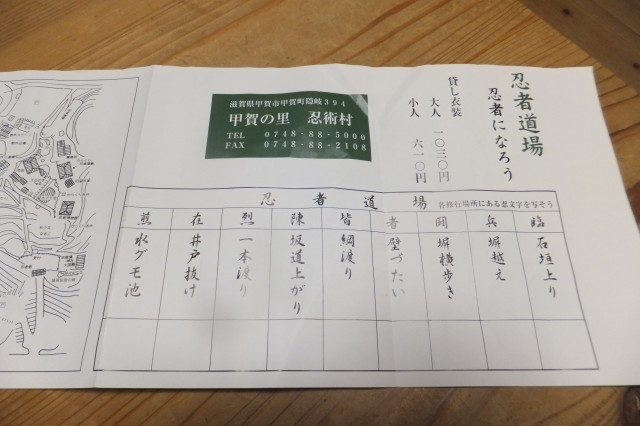 忍者道場
忍者になろう
貸し衣装
大人 一〇三〇円
小人 六一〇円
滋賀県甲賀市甲賀町隠岐394
甲賀の里 忍術村
TEL 0748-88-5000
FAX 0748-88-2108
忍者道場 各修行場所にある忍文字を写そう
臨 石垣上り
兵 塀越え
闘 塀横歩き
者 壁づたい
皆 綱渡り
陳 坂道上がり
烈 一本渡り
在 井戸抜け
煎 水グモ池